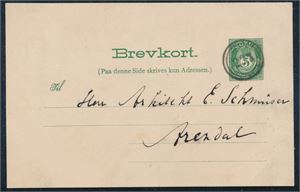 Brevkort.
(Paa denne Side skrives kun Adressen.)
Til
Herr Arkitekt E. Schmüser
Arendal